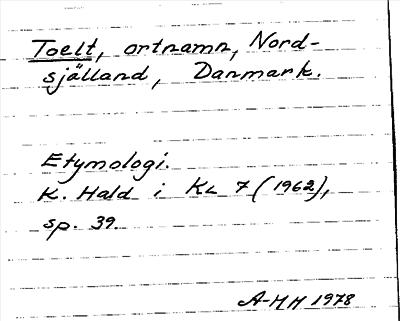 Toelt, ortnamn, Nord-
själland, Danmark.
Etymologi.
K. Hald i KL 7 (1962),
sp. 39.
A-MH 1978